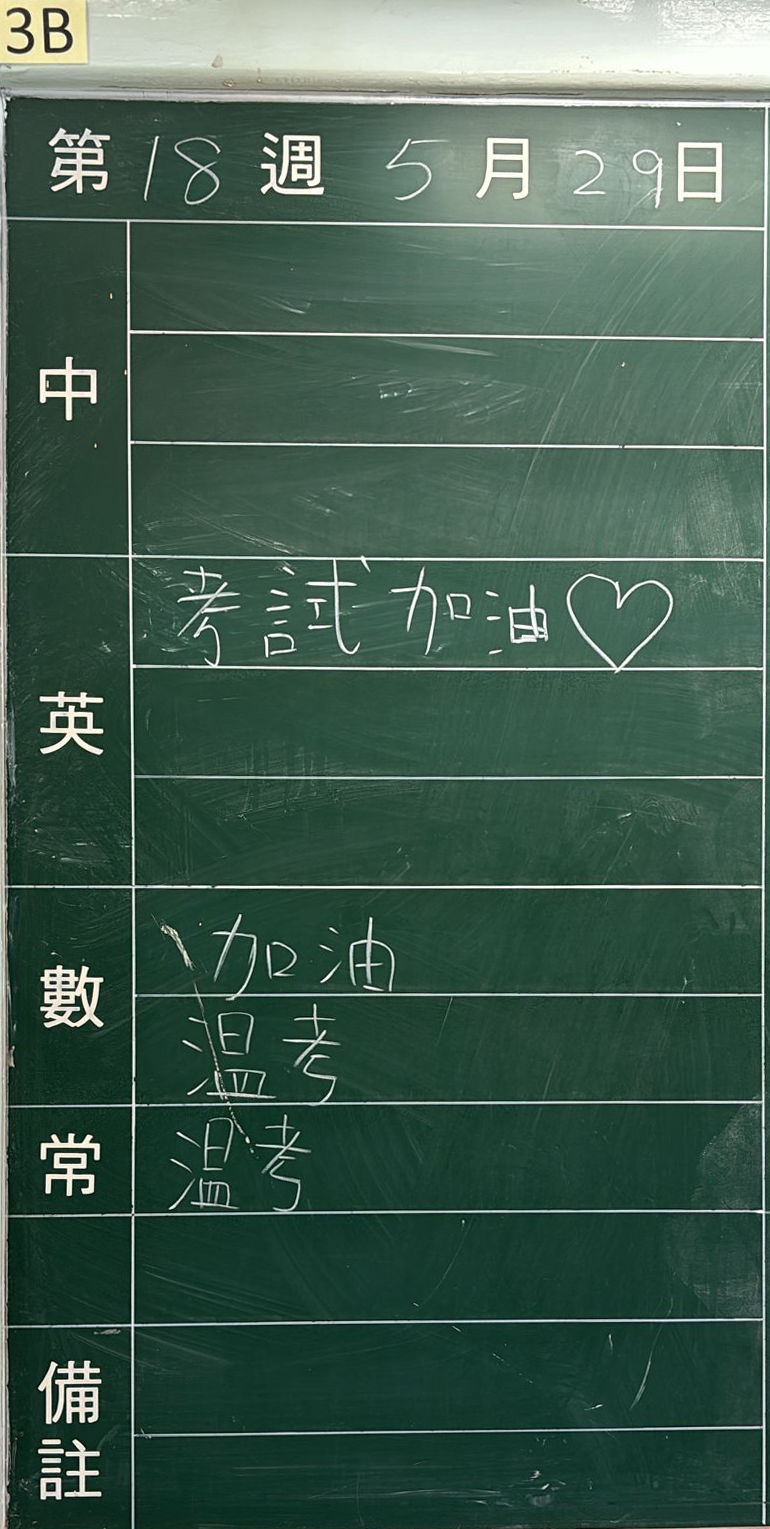 3B
第18週 5月29日
中
英
考試加油♡
數
加油
温考
常
温考
備註